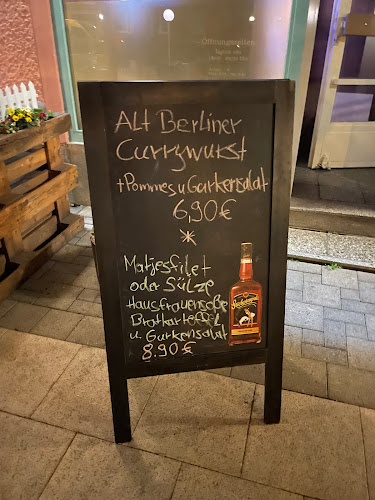 Öffnungszeiten
Alt Berliner
Currywurst
+ Pommes u Gurkensalat
6,90€
*
Matjesfilet
oder Sülze
Hausfrauensoße
Bratkartoffel
u Gurkensalat
8.90€